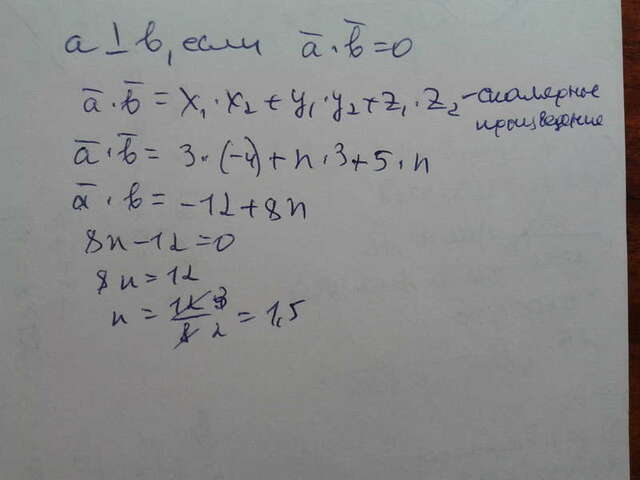 a ⊥ b, если a̅ · b̅ = 0
a̅ · b̅ = x₁ · x₂ + y₁ · y₂ + z₁ · z₂ - скалярное
произведение
a̅ · b̅ = 3 · (-4) + n · 3 + 5 · n
a̅ · b̅ = -12 + 8n
8n - 12 = 0
8n = 12
n = 12 3 / 8 2 = 1,5